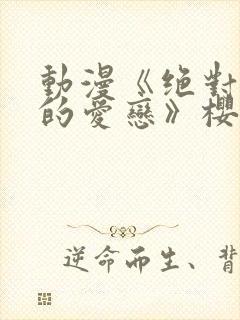 動漫《絕對
的愛戀》櫻
逆命而生、背